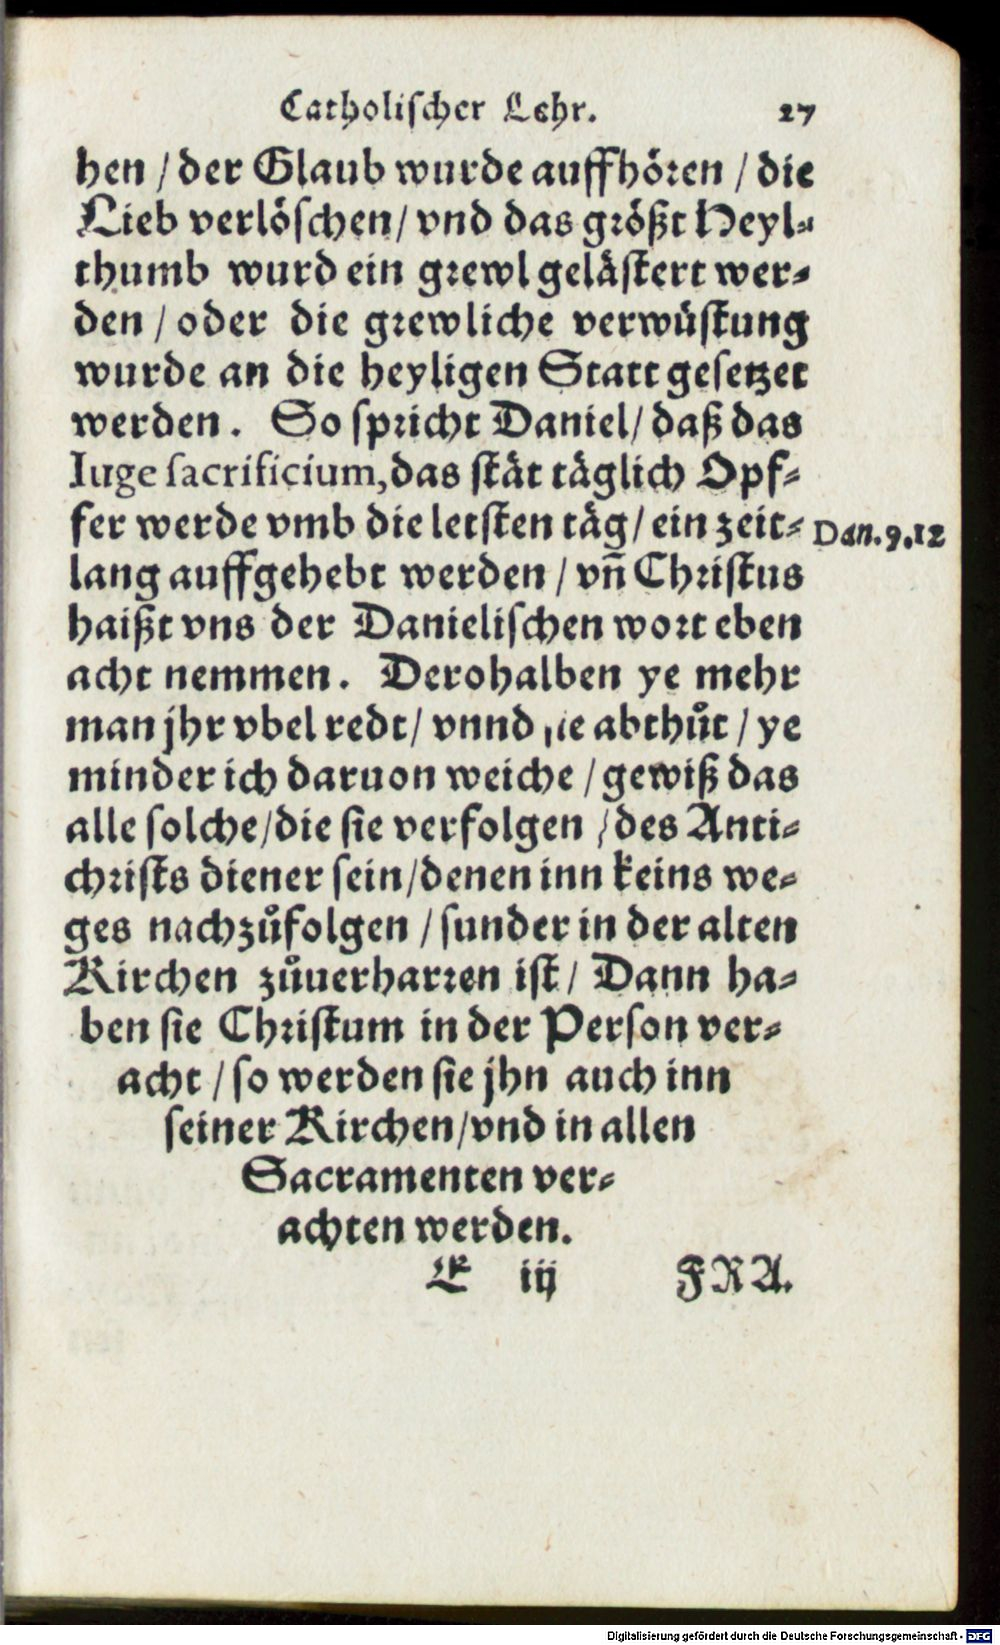 Catholischer Lehr. 27
hen / der Glaub wurde auffhören / die
Lieb verlöschen / vnd das größt Heyl-
thumb wurd ein grewl gelästert wer-
den / oder die grewliche verwüstung
wurde an die heyligen Statt gesetzet
werden. So spricht Daniel / daß das
Iuge sacrificium, das stät täglich Opf-
fer werde vmb die letsten täg / ein zeit-
Dan. 9. 12
lang auffgehebt werden / vñ Christus
haißt vns der Danielischen wort eben
acht nemmen. Derohalben ye mehr
man jhr vbel redt / vnnd sie abthůt / ye
minder ich daruon weiche / gewiß das
alle solche / die sie verfolgen / des Anti-
christs diener sein / denen inn keins we-
ges nachzůfolgen / sunder in der alten
Kirchen zůuerharren ist / Dann ha-
ben sie Christum in der Person ver-
acht / so werden sie jhn auch inn
seiner Kirchen / vnd in allen
Sacramenten ver-
achten werden.
E iij FRA.
Digitalisierung gefördert durch die Deutsche Forschungsgemeinschaft - DFG